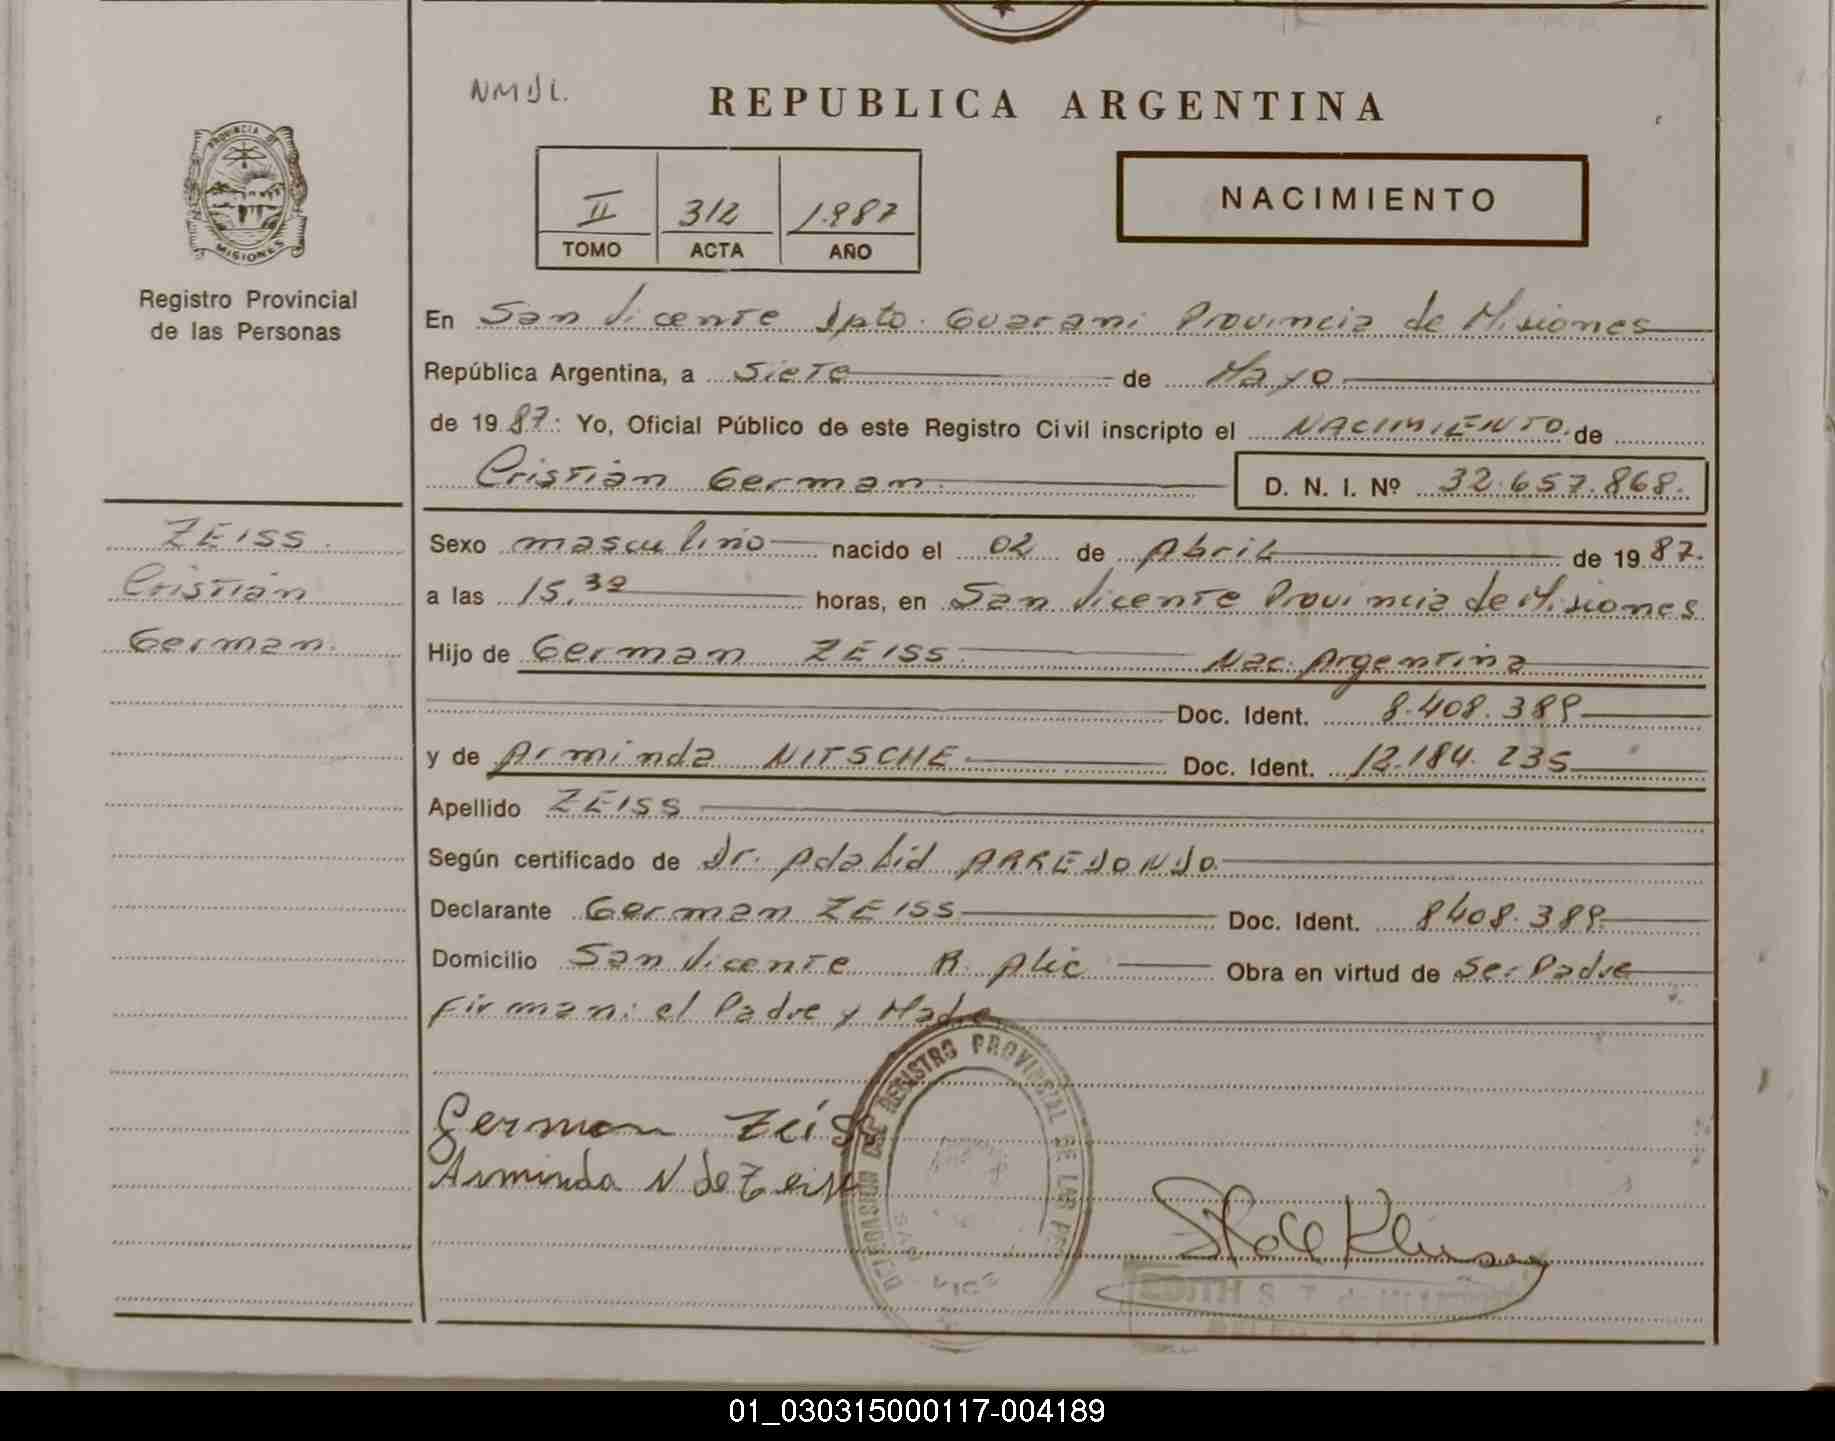 NMDL.
REPUBLICA ARGENTINA
PROVINCIA DE
MISIONES
II 312 1987
TOMO ACTA AÑO
NACIMIENTO
Registro Provincial
de las Personas
En San Vicente Dpto. Guarani Provincia de Misiones
República Argentina, a Siete de Mayo
de 1987: Yo, Oficial Público de este Registro Civil inscripto el NACIMIENTO de
Cristian German D. N. I. Nº 32.657.868.
ZEISS.
Cristian
German.
Sexo masculino nacido el 02 de Abril de 1987.
a las 15,30 horas, en San Vicente Provincia de Misiones
Hijo de German ZEISS. Nac. Argentina
Doc. Ident. 8.408.389
y de Arminda NITSCHE Doc. Ident. 12.184.235
Apellido ZEISS
Según certificado de Dr. Adalid ARREDONDO.
Declarante German ZEISS Doc. Ident. 8408.389.
Domicilio San Vicente Obra en virtud de Ser Padre
Firman: el Padre y Madre
German Zeiss
Arminda N de Zeiss
DELEGACION DEL REGISTRO PROVINCIAL DE LAS
EDITH S. T. de
01_030315000117-004189